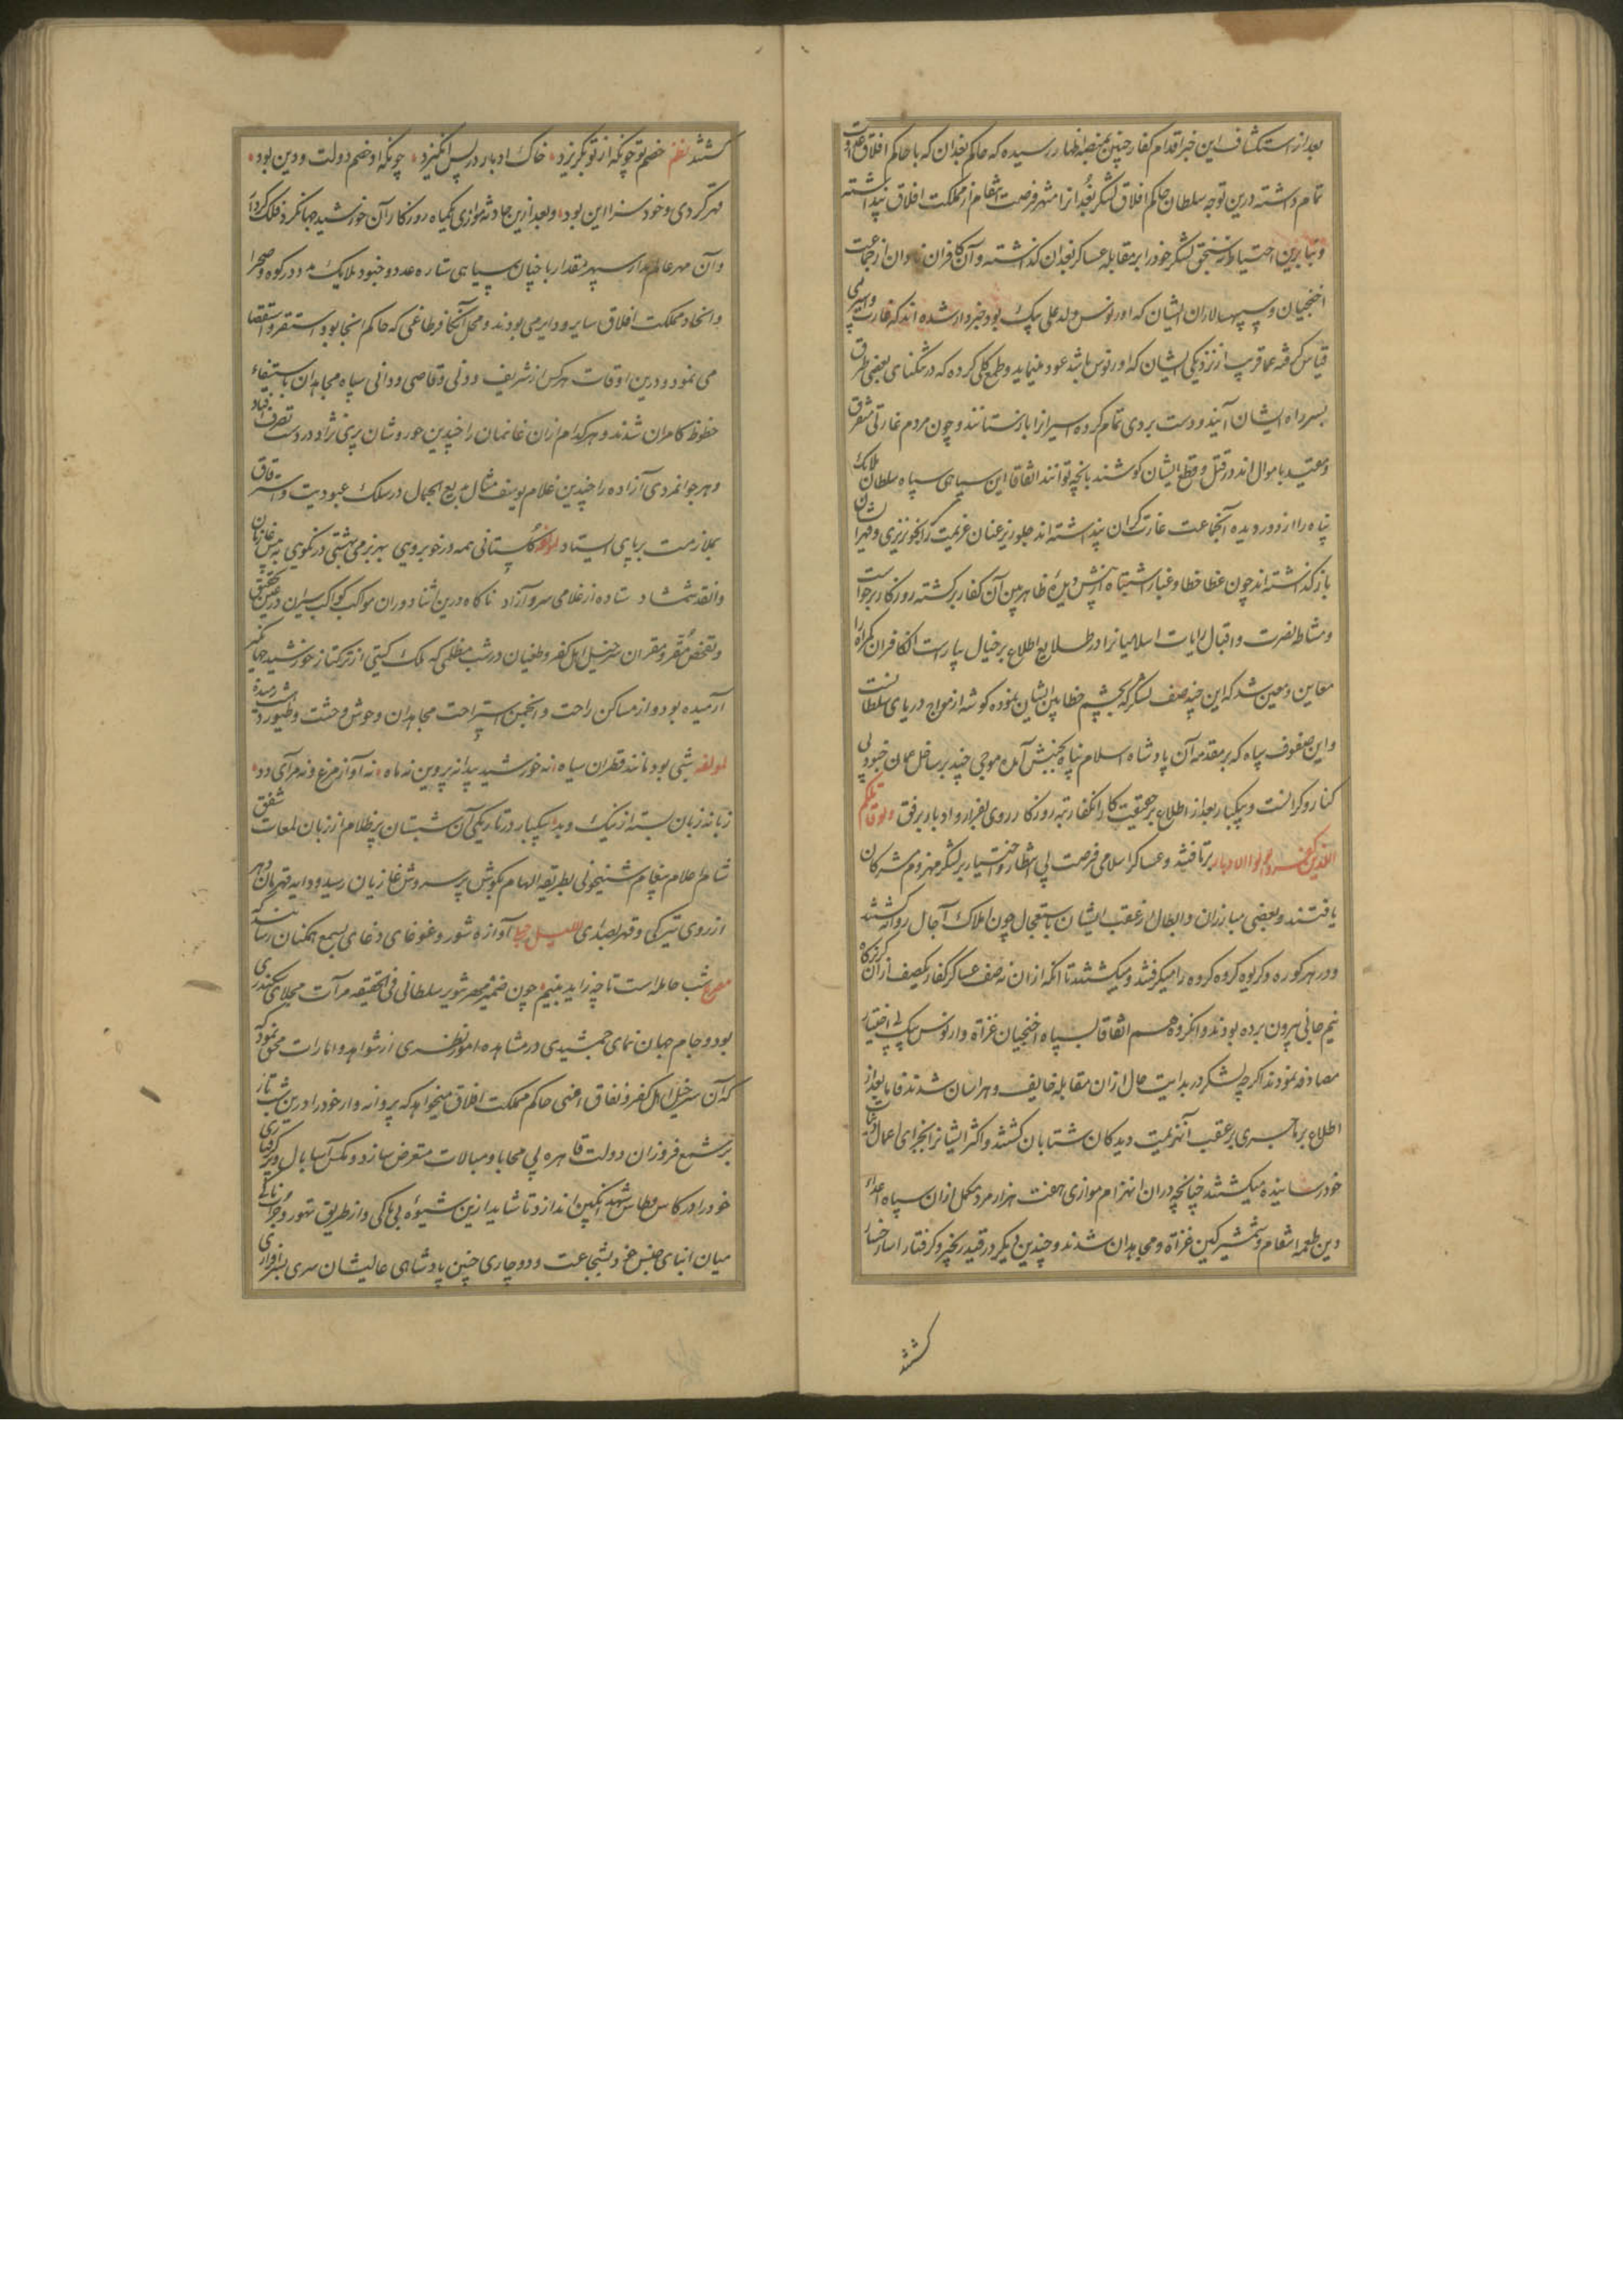 بعد از استکشاف این خبر اقدام کفار چنین بمنصه اظهار رسیده که حاکم بغدان که با حاکم افلاق
تمام داشته درین توجه سلطان حاکم افلاق لشکر بغدانرا منتهز فرصت انتقام از مملکت افلاق پنداشته
و بنابرین احتیاط لشکر خود را بر مقابله عساکر بغدان گذاشته و آن کافران از جماعت
اخنجیان و سپهسالاران ایشان که اورنوس ولد علی بیک بود خبردار شده اند که غارت
قیاس گرفته عما قریب از نزدیکی ایشان که اورنوس باشد عود مینماید و طمع کلی کرده که در تنکنای بعضی طرق
بسر راه ایشان آیند و دست بردی تمام کرده اسیرانرا بازستانند و چون مردم غارتی متفرق
و مقید باموال اند در قتل و قطع ایشان کوشند بانچه توانند اتفاقا این سپاهی سپاه سلطان ملائک
پناه را از دور دیده آنجماعت غارت کران پنداشته اند جلوریز عنان عزیمت بخونریزی و قهر ایشان
باز گذاشته اند چون غطا خطا و غبار اشتباه از پیش دیده ظاهربین آن کفار برکشته روزکار برخواست
و مشاطه نصرت و اقبال رایات اسلامیانرا در طلایع اطلاع بر خیال بیاراست آن کافران کمراه را
معاین و معین شد که این چند صف لشکر که بچشم خطابین ایشان نموده کوشه از امواج دریای سلطانست
و این صفوف سپاه که بر مقدمه آن پادشاه اسلام پناه بجنبش آمده موجی چند بر ساحل عمان جنود بی
کنار و کرانست و بیکبار بعد از اطلاع بر حقیقت کار آن کفار تبه روزکار روی بفرار و ادبار برق ولو قاتلکم
الذین کفروا لولوا الادبار برتافتند و عساکر اسلامی فرصت بی انتظار و اختیار بر لشکر منهزم مشرکان
یافتند و بعضی مبارزان و ابطال از عقب ایشان باستعجال چون املاک آجال روانه کشتند
و در هر کوره و کریوه کروه کروه را میکرفتند و میکشتند تا انکه از ان نه صف عساکر کفار یکصف از ان
نیم جانی بیرون برده بودند و آنکروه هم اتفاقا بسپاه اخنجیان غزاة و اورنوس بیک بی اختیار
مصادفه نمودند اکرچه لشکر در بدایت حال از ان مقابله خایف و هراسان شدند فاما بعد از
اطلاع بر ماجری بر عقب آن هزیمت دیدکان شتابان کشتند و اکثر ایشانرا بجزای اعمال
خود رسانیده میکشتند چنانچه در ان انهزام موازی هفت هزار مرد مکمل از ان سپاه اعداء
دین طعمه انتقام و شمشیر کین غزاة و مجاهدان شدند و چندین دیکر در قید زنجیر و کرفتار اسار خسار
کشتند
کشتند نظم خصم تو چونکه از تو بکریزد خاک ادبار در پس انکیزد چونکه او خصم دولت و دین بود
قهر کردی و خود سزا این بود و بعد ازین حادثه موازی یکماه روزکار آن خورشید جهانکرد فلک کردار
و آن مهر عالم مدار سپهر مقدار با چنان سپاهی ستاره عدد و جنود ملایک مدد در کوه و صحرا
و انحاء مملکت افلاق سایر و دایر می بودند و محل آن کافر طاغی که حاکم انجا بود استقرا و استقصا
می نمود و درین اوقات هر کس از شریف و دنی و قاصی و دانی سپاه مجاهدان باستیفاء
حظوظ کامران شدند و هر کدام از ان غانمان را چندین حوروشان پری نژاد در دست تصرف افتاد
و هر جوانمردی آزاده را چندین غلام یوسف مثال بدیع الجمال در سلک عبودیت و استرقاق
بملازمت بر پای ایستاد لمولفه کلستانی همه در خوبرویی بهر بزمی بهشتی در نکویی
شمشاد ستاده از غلامی سرو آزاد ناکاه درین اثنا دوران مواکب کواکب سیران در عین تحقیق
و تفحص مقر و مفر آن سرخیل اهل کفر و طغیان در شب مظلمی که ملک کیتی از ترکتاز خورشید جهانکیر
آرمیده بود و از مساکن راحت و انجمن استراحت مجاهدان وحوش وحشت و طیور
لمولفه شبی بود مانند قطران سیاه نه خورشید پیدا نه پروین نه ماه نه آواز مرغ و نه هرآی دد
زمانه زبان بسته از نیک و بد بیکبار در تاریکی آن شبستان پرظلام از زبان لمعات شفق
شام اعلام پیغام شبیخونی بطریقه الهام بکوش پر سروش غازیان رسید و دایه قهرمان دهر
از روی تیرکی و قهر بصدای اللیل حبلی آوازه شور و غوغای دغایی بسمع همکنان رسانید که
مصرع شب حامله است تا چه زاید بینیم چون ضمیر مهر تنویر سلطانی فی الحقیقه مرآت مجلای سکندری
بود و جام جهان نمای جمشیدی در مشاهده امور نظری از شواهد و امارات محقق نمود
که آن سرخیل اهل کفر و نفاق اعنی حاکم مملکت افلاق میخواهد که پروانه وار خود را درین شب تار
بر شمع فروزان دولت قاهره بی محابا و مبالات متعرض سازد و مکس آسا بال و پر کرفتاری
خود را در کاس و طاس شهد انکبین اندازد تا شاید ازین شیوه بی باکی و از طریق تهور و جرأت
میان ابنای جنس خود بشجاعت و دوچاری چنین پادشاهی عالیشان سری بسرافرازی